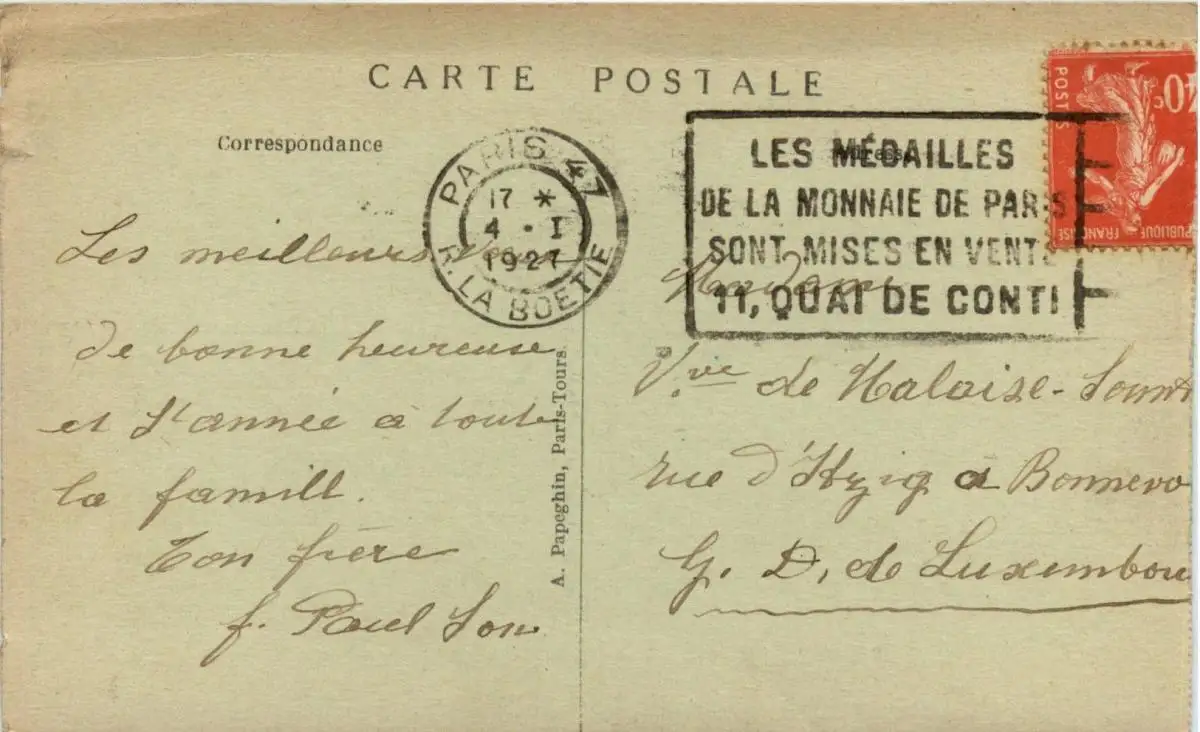 CARTE POSTALE
Correspondance
PARIS 47
17 *
4 · I
1927
R. LA BOETIE
LES MÉDAILLES
DE LA MONNAIE DE PARIS
SONT MISES EN VENTE
11, QUAI DE CONTI
40c
POSTES
REPUBLIQUE FRANÇAISE
Les meilleurs
de bonne heureuse
et d'année à toute
la famill.
Ton frère
f. Paul Son
A. Papeghin, Paris-Tours
Madame
Vve de Malaise-
rue d' à Bonnevo
G. D. de Luxembou